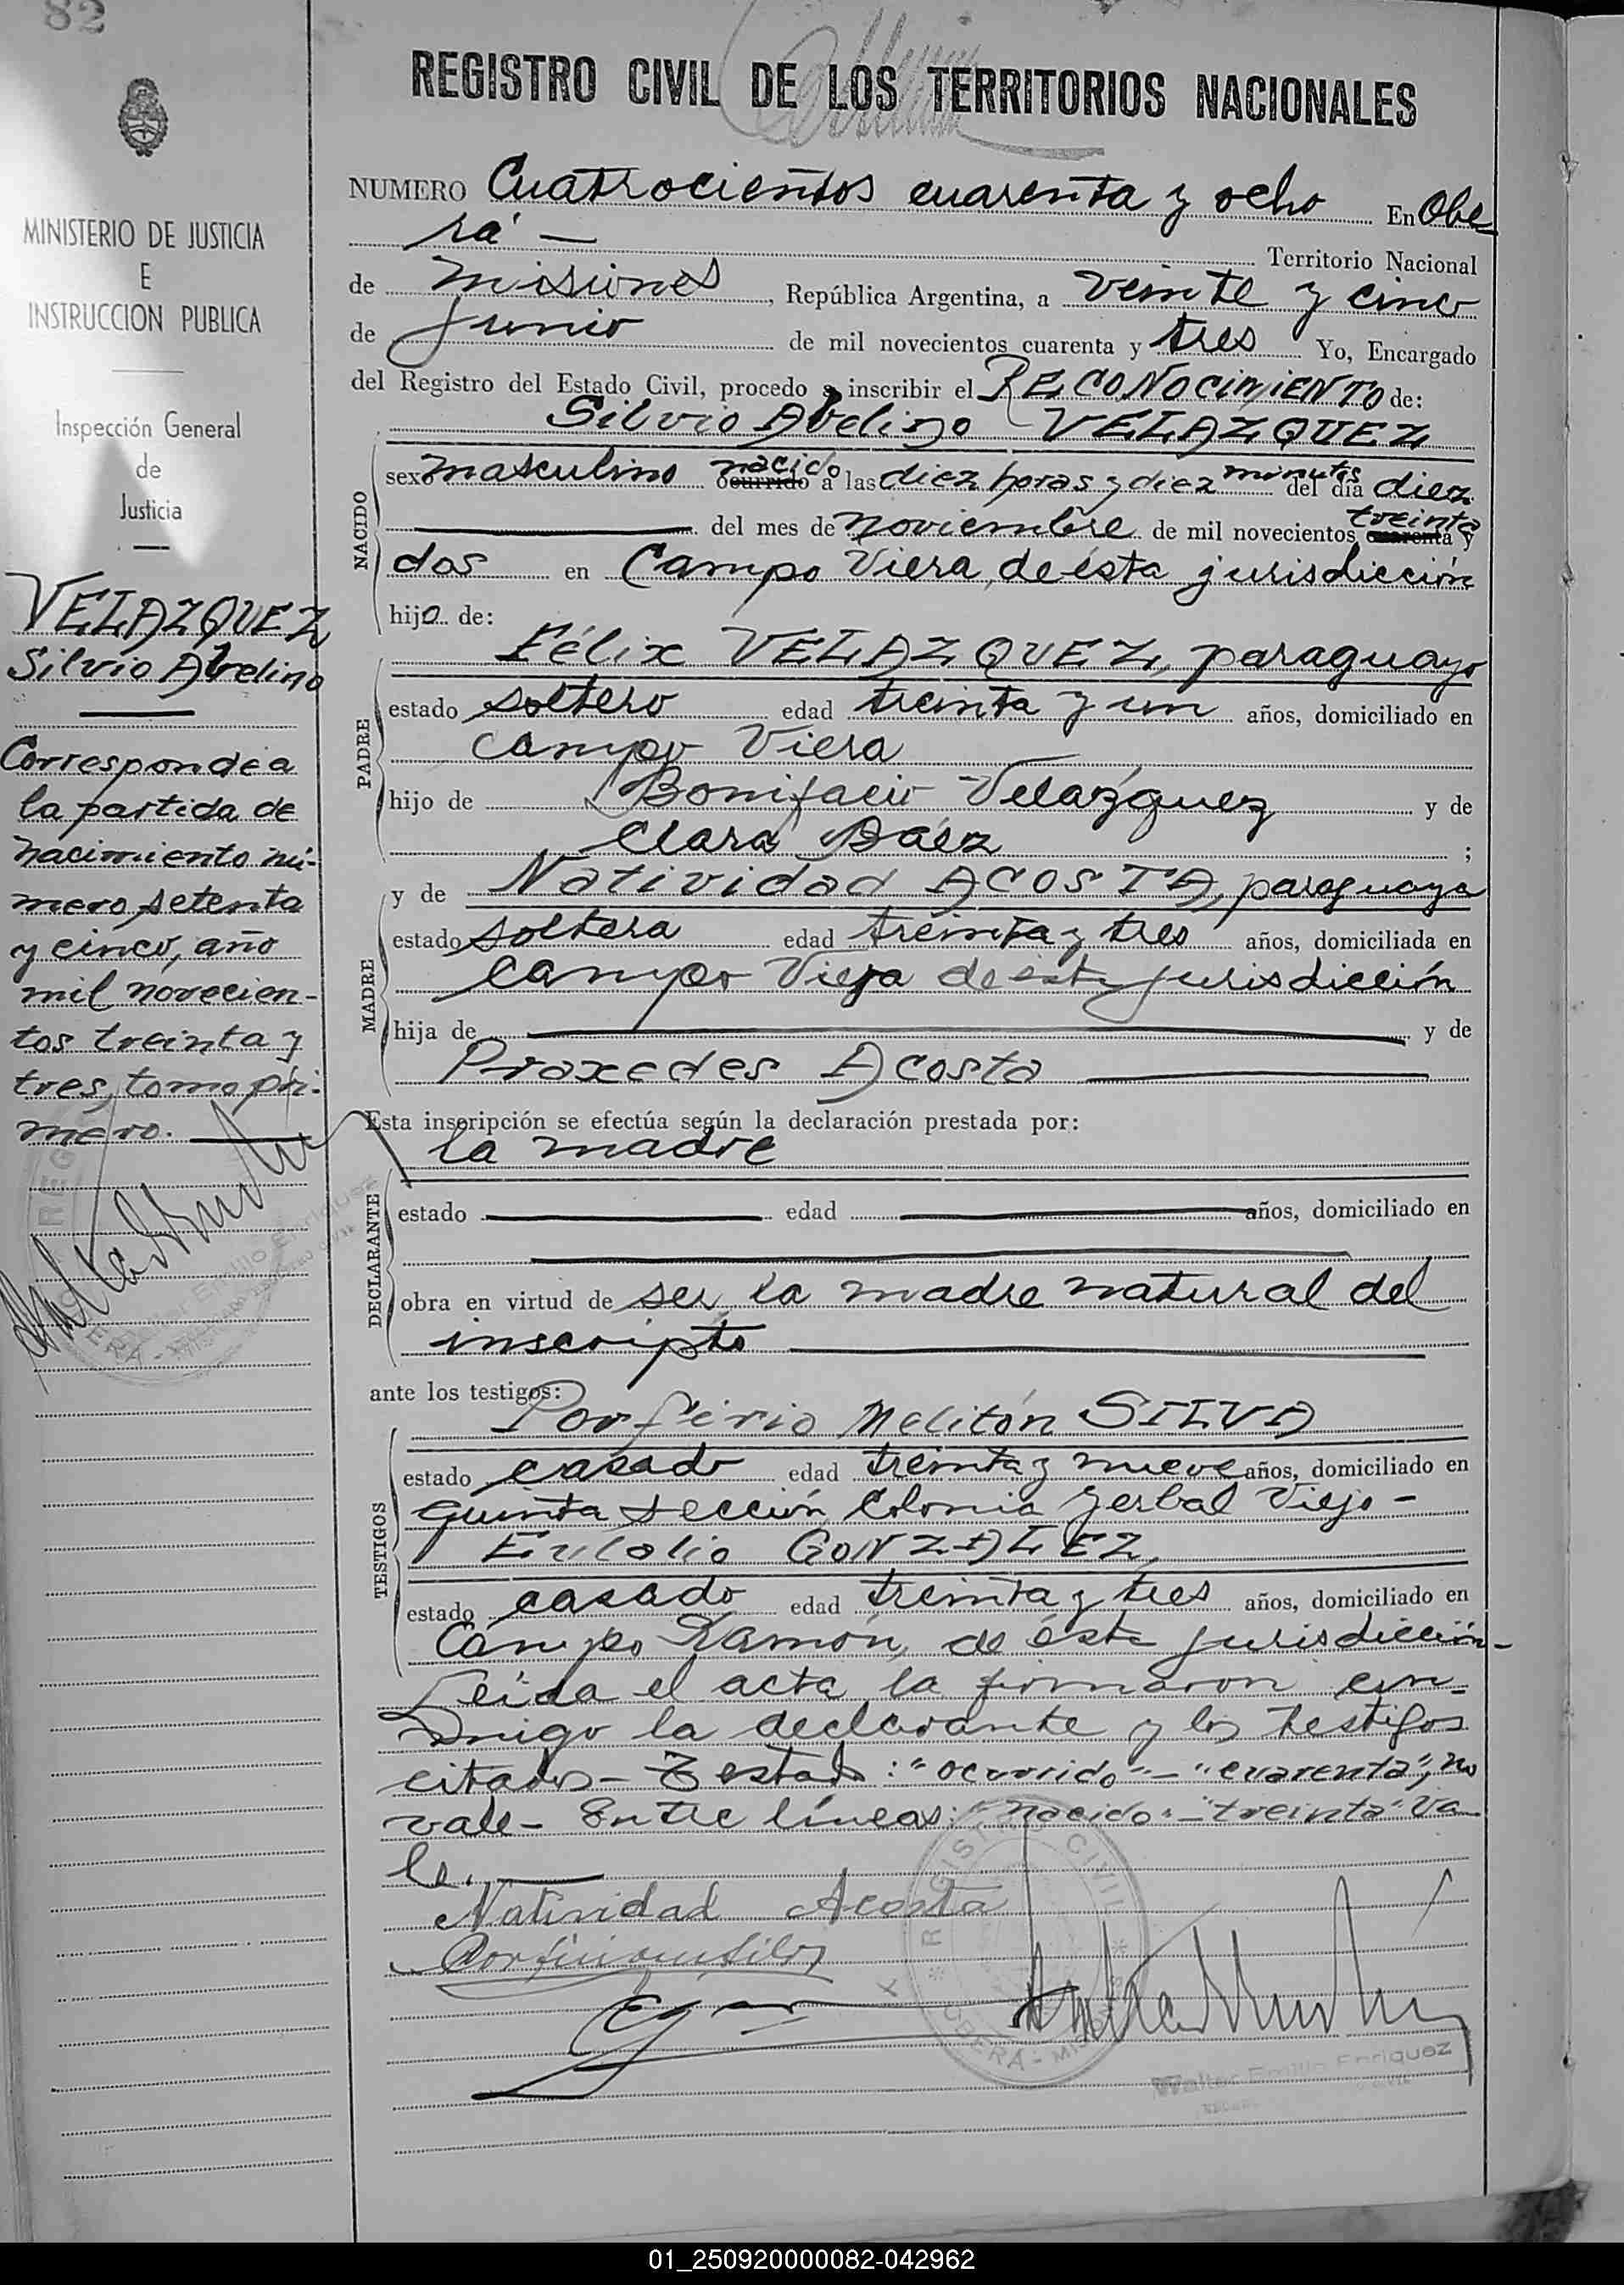 82
REGISTRO CIVIL DE LOS TERRITORIOS NACIONALES
MINISTERIO DE JUSTICIA
E
INSTRUCCION PUBLICA
Inspección General
de
Justicia
VELAZQUEZ
Silvio Abelino
Corresponde a
la partida de
nacimiento nú-
mero setenta
y cinco, año
mil novecien-
tos treinta y
tres, tomo pri-
mero.
NUMERO Cuatrocientos cuarenta y ocho En Obe-
rá —
Territorio Nacional
de Misiones, República Argentina, a veinte y cinco
de Junio de mil novecientos cuarenta y tres Yo, Encargado
del Registro del Estado Civil, procedo a inscribir el RECONOCIMIENTO de:
Silvio Abelino VELAZQUEZ
NACIDO
sexo masculino ocurrido nacido a las diez horas y diez minutos del día diez
del mes de noviembre de mil novecientos cuarenta treinta y
dos en Campo Viera, de ésta jurisdicción
hijo de:
PADRE
Félix VELAZQUEZ, paraguayo
estado soltero edad treinta y un años, domiciliado en
campo Viera
hijo de Bonifacio Velázquez y de
Clara Báez ;
MADRE
y de Natividad ACOSTA, paraguaya
estado soltera edad treinta y tres años, domiciliada en
campo Viera de ésta jurisdicción
hija de y de
Praxedes Acosta
Esta inscripción se efectúa según la declaración prestada por:
DECLARANTE
la madre
estado edad años, domiciliado en
obra en virtud de ser la madre natural del
inscripto
ante los testigos:
TESTIGOS
Porfirio Melitón SILVA
estado casado edad treinta y nueve años, domiciliado en
quinta sección Colonia Yerbal Viejo -
Eulalio GONZALEZ,
estado casado edad treinta y tres años, domiciliado en
Campo Ramón, de ésta jurisdicción -
Leida el acta la firmaron con-
migo la declarante y los testigos
citados - Testado: "ocurrido" - "cuarenta", no
vale - Entre líneas: "nacido" - "treinta" Va-
le.
Natividad Acosta
REGISTRO CIVIL
OBERA - MISIONES
Walter Emilio Enriquez
01_250920000082-042962